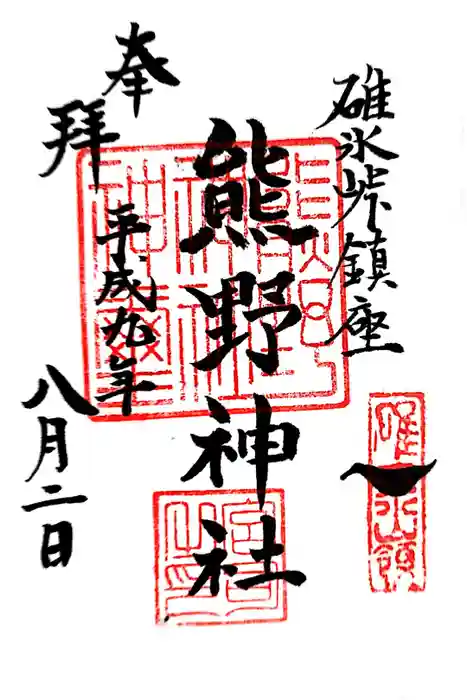 碓氷峠鎮座
熊野神社
奉拝
平成九年
八月二日
碓氷嶺